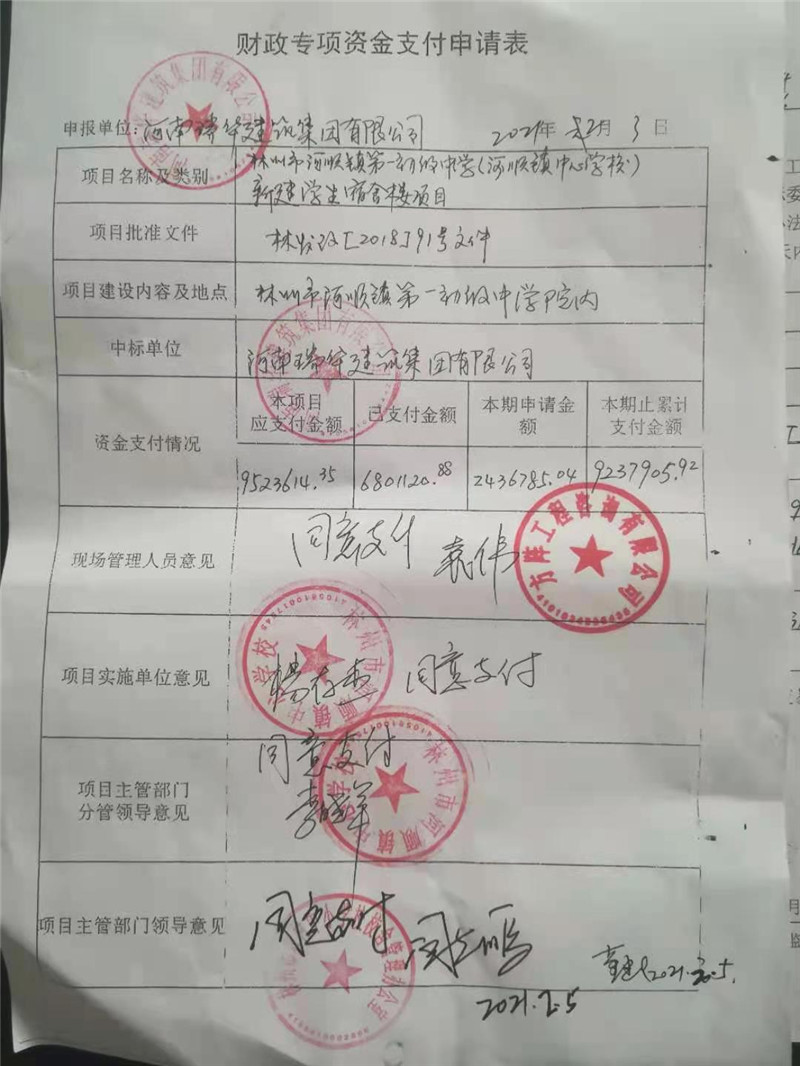 财政专项资金支付申请表
申报单位:河南瑞华建筑集团有限公司 2021年 2月 3 日
项目名称及类别
林州市河顺镇第一初级中学(河顺镇中心学校)
新建学生宿舍楼项目
项目批准文件
林发改[2018]91号文件
项目建设内容及地点
林州市河顺镇第一初级中学院内
中标单位
河南瑞华建筑集团有限公司
资金支付情况
本项目
应支付金额
已支付金额
本期申请金
额
本期止累计
支付金额
9523614.35
6801120.88
2436785.04
9237905.92
现场管理人员意见
同意支付 袁伟
方阵工程咨询有限公司
项目实施单位意见
杨存 同意支付
林州市河顺镇中心学校
4105810017545
项目主管部门
分管领导意见
同意支付
李晓军
林州市河顺镇中心学校
项目主管部门领导意见
同意支付
2021.2.5
2021.2.5.